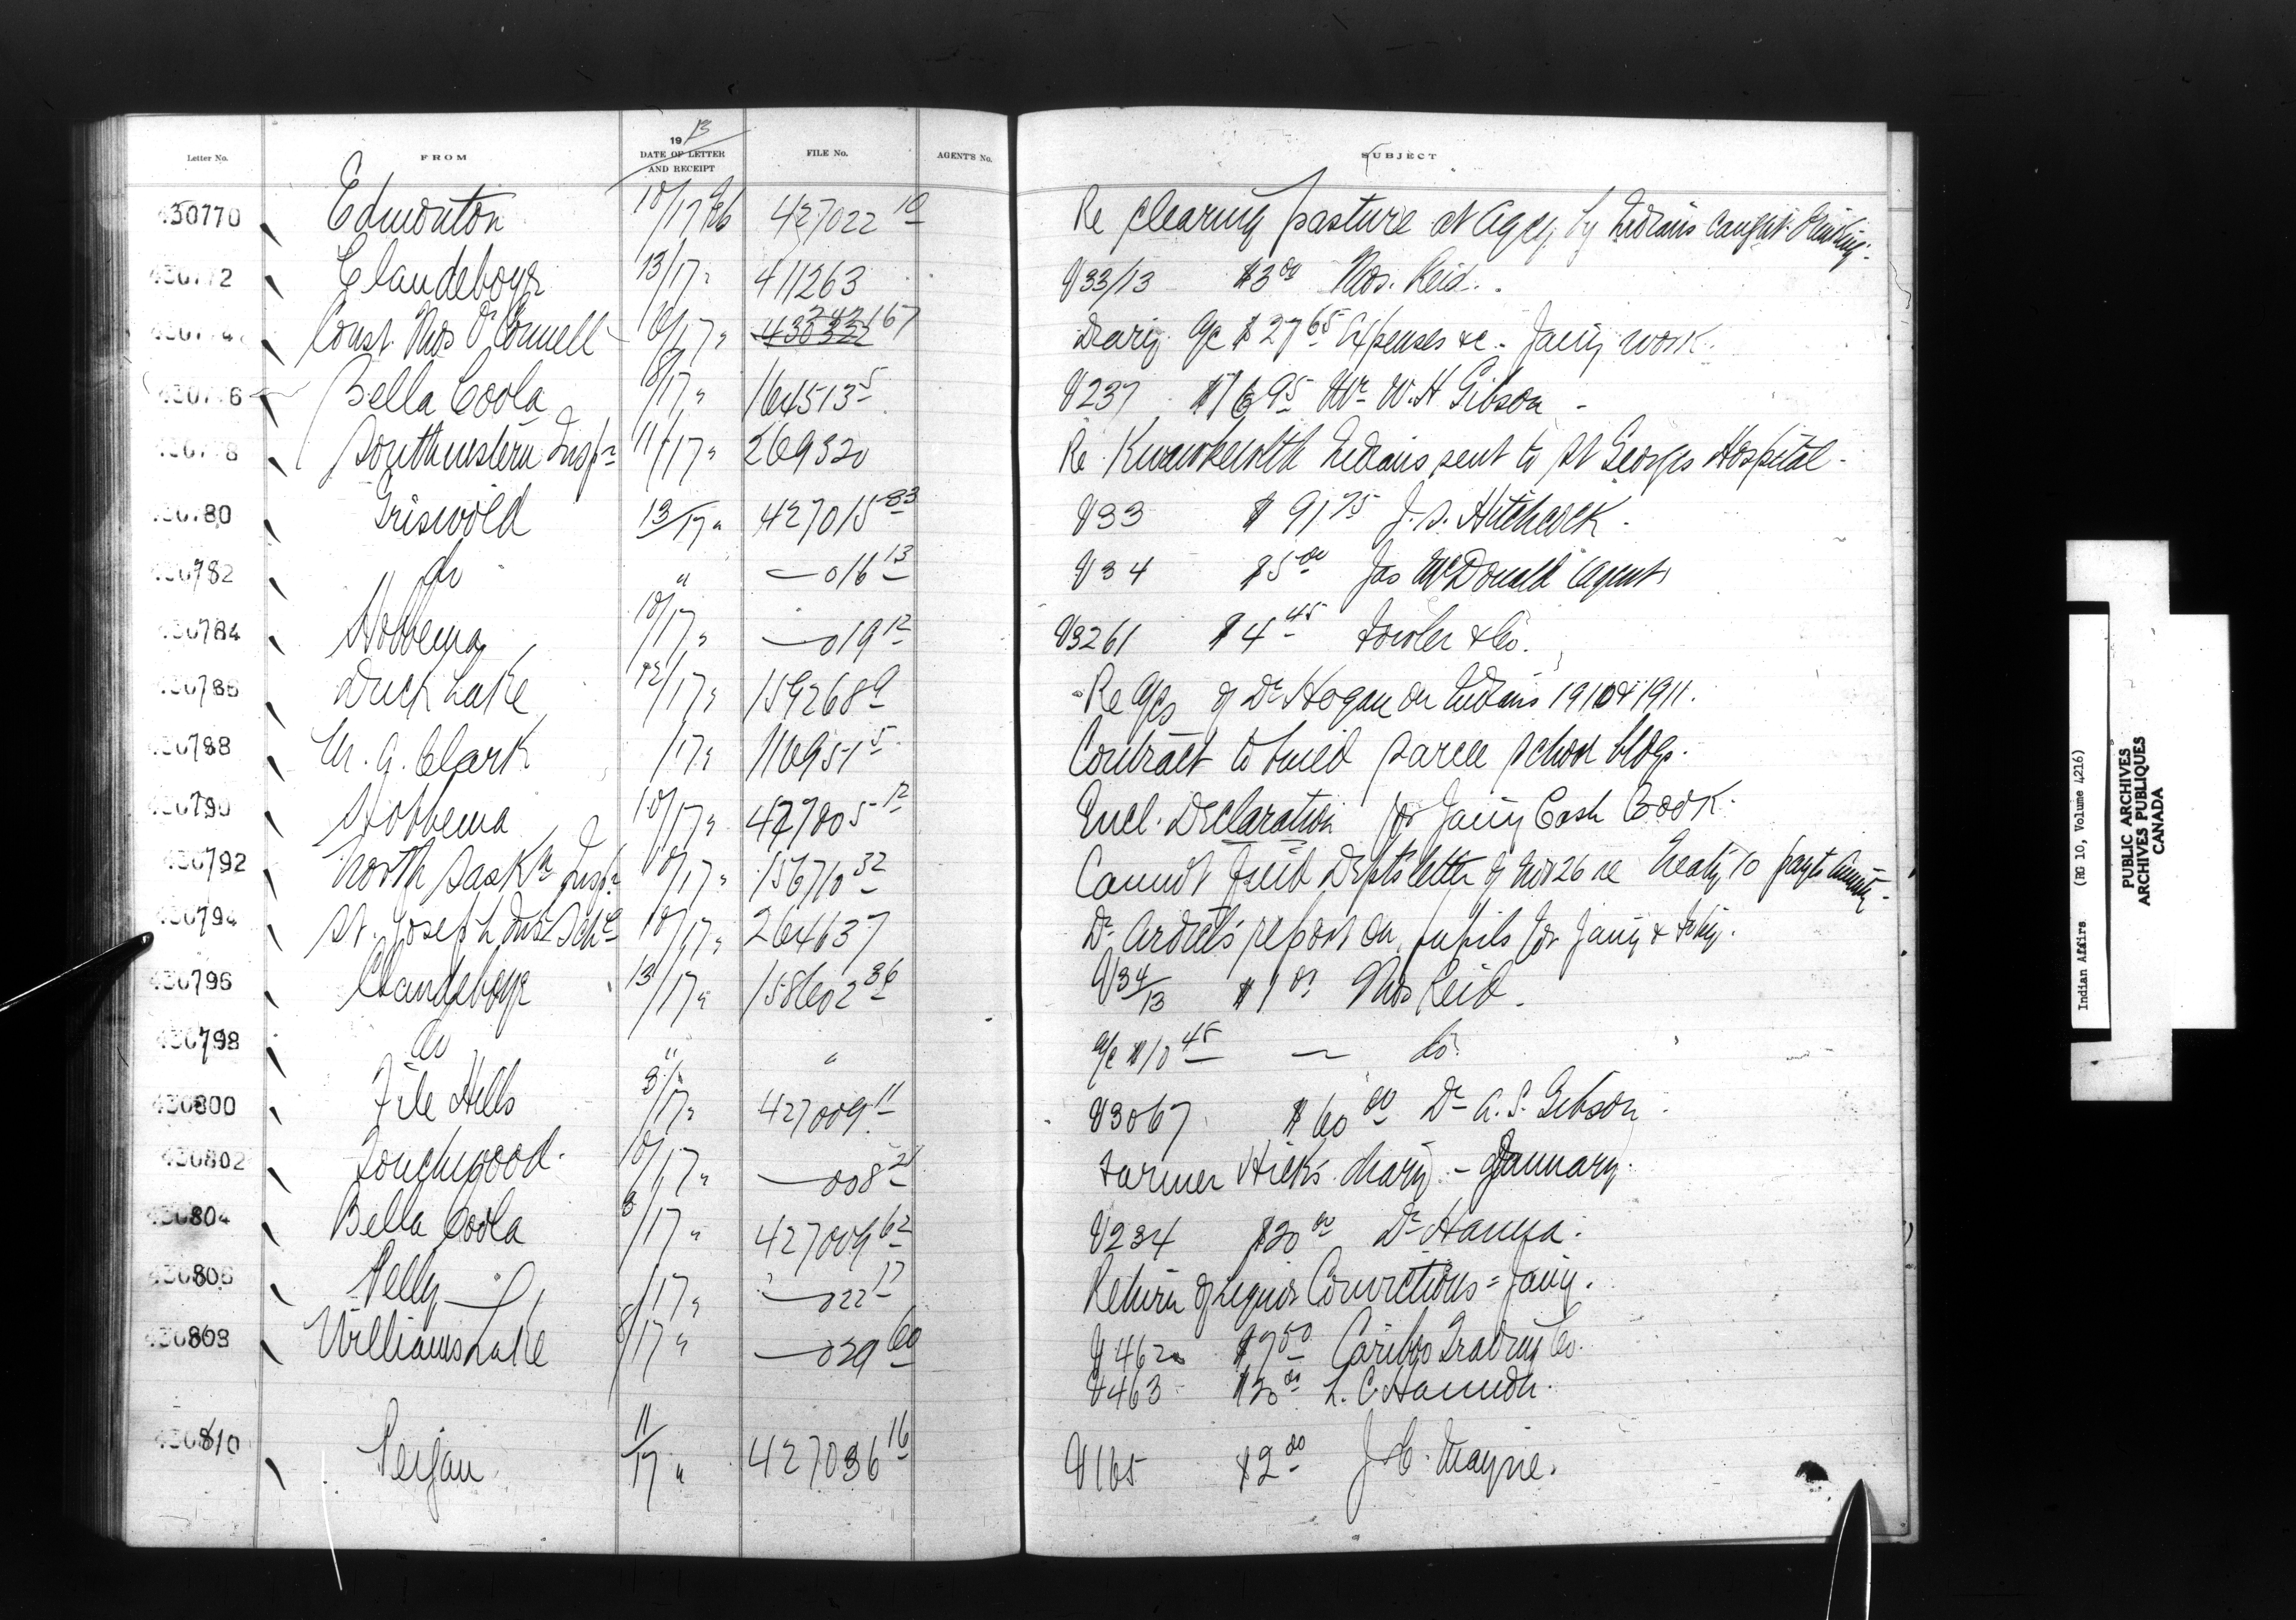 Letter No. FROM 1913 DATE OF LETTER AND RECEIPT FILE No. AGENT'S No. SUBJECT
430770 Edmonton 10/17 Feb 427022 10 Re clearing pasture at Agcy, by Indians caught drinking.
430772 Clandeboye 13/17 " 411263 V33/13 $3 00 Thos. Reid.
430774 Const. Thos O'Connell 10/17 " 430332 242167 Diary a/c $27 65 Expenses &c - Jany work.
430776 Bella Coola 8/17 " 164513 5 V237 $76 95 Mr W.H Gibson -
430778 Southwestern Insp. 11/17 " 269320 Re Kwawkewlth Indians sent to St Georges Hospital -
430780 Griswold 13/17 " 427015 83 V33 $91 75 J. S. Hitchcock.
430782 do " — 016 13 V34 $5 00 Jas McDonald Agent
430784 Hobbema 10/17 " — 019 12 V3261 $4 45 Fowler & Co.
430786 Duck Lake 12/17 " 159268 9 Re a/cs of Dr Hogan on Indians 1910 & 1911.
430788 M. G. Clark /17 " 116951 5 Contract to build Sarcee School bldgs.
430790 Hobbema 10/17 " 427005 12 Encl. Declaration for Jany Cash Book.
430792 North Saskn Insp. 10/17 " 156710 32 Cannot find Dept's letter of Nov 26 re Treaty 10 payts Annuity.
430794 St. Joseph Ind Schl 10/17 " 264637 Dr Ardiel's report on pupils for Jany & Feby.
430796 Clandeboye 13/17 " 158602 36 V34/13 $1 00 Thos Reid.
430798 do " " a/c $10 45 — do.
430800 File Hills 3/17 " 427009 11 V3067 $60 00 Dr A. S. Gibson.
430802 Touchwood. 10/17 " — 008 21 Farmer Hicks' diary - January.
430804 Bella Coola 8/17 " 427009 62 V234 $20 00 Dr
430806 Pelly /17 " — 022 17 Return of Liquor Convictions = Jany.
430808 Williams Lake 8/17 " — 029 60 V462 $7 50 Cariboo Trading Co.
V463 $20 00 L. C.
430810 Peigan 11/17 " 427036 16 V165 $2 00 J. C. Mayne.
Indian Affairs (RG 10, Volume 4216)
PUBLIC ARCHIVES
ARCHIVES PUBLIQUES
CANADA